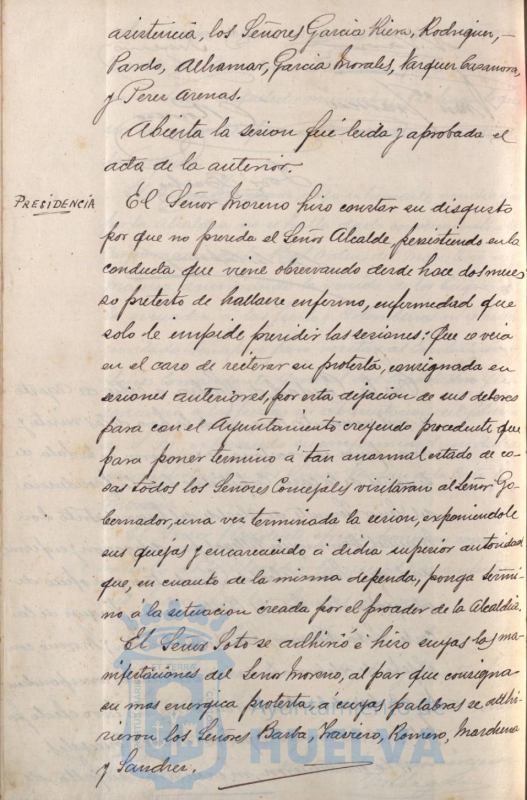 asistencia, los Señores Garcia Riera, Rodriguer,-
Pardo, Alhramar, Garcia Morales, Varquer Casanova,
y Perer Arenas.
Abierta la sesion fué leida y aprobada el
acta de la anterior.
PRESIDENCIA
El Señor Moreno hiro constar su disgusto
por que no presida el Señor Alcalde persistiendo en la
conducta que viene observando desde hace dos meses
so pretesto de hallarse enfermo, enfermedad que
solo le impide presidir las sesiones: Que se veia
en el caso de reiterar su protesta, consignada en
sesiones anteriores, por esta dejacion de sus deberes
para con el Ayuntamiento creyendo procedente, que
para poner término á tan anormal estado de co-
sas todos los Señores Concejales visitaran al Señor Go-
bernador, una ver terminada la sesion, exponiendole
sus quejas y encareciendo á dicha superior autoridad
que, en cuanto de la misma dependa, ponga térmi-
no á la situacion creada por el proceder de la Alcaldia.
El Señor Soto se adhirió é hiro suyas las ma-
nifestaciones del Señor Moreno, al par que consigna
su mas energica protesta, á cuyas palabras se adhi-
rieron los Señores Barba, Traviero, Romero, Marchena
y Sancher.
Ayuntamiento de
HUELVA